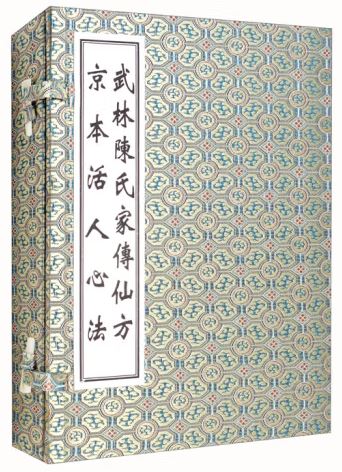 武林陳氏家傳仙方
京本活人心法